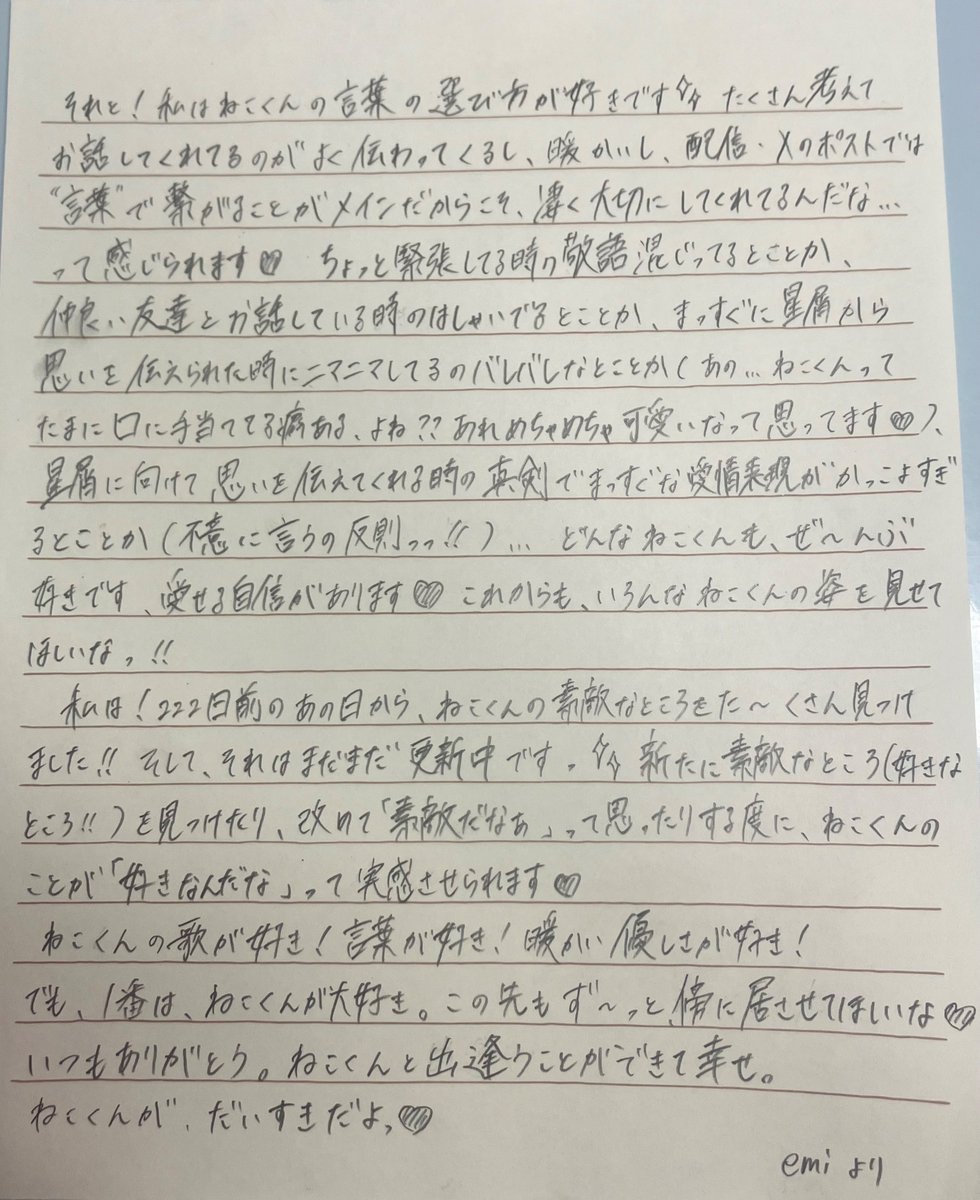 それと！私はねこくんの言葉の選び方が好きです✨ たくさん考えて
お話してくれてるのがよく伝わってくるし、暖かいし、配信・Xのポストでは
"言葉"で繋がることがメインだからこそ、凄く大切にしてくれてるんだな…
って感じられます♡ ちょっと緊張してる時の敬語混じってるとことか、
仲良い友達とお話している時のはしゃいでるとことか、まっすぐに星屑から
思いを伝えられた時にニマニマしてるのバレバレなとことか(あの…ねこくんって
たまに口に手当ててる癖ある、よね??あれめちゃめちゃ可愛いなって思ってます♡)、
星屑に向けて思いを伝えてくれる時の真剣でまっすぐな愛情表現がかっこよすぎ
るとことか(不意に言うの反則っっ!!)… どんなねこくんも、ぜ〜んぶ
好きです、愛せる自信があります♡ これからも、いろんなねこくんの姿を見せて
ほしいなっ!!
私は！222日前のあの日から、ねこくんの素敵なところをた〜くさん見つけ
ました!! そして、それはまだまだ更新中です。✨ 新たに素敵なところ(好きな
ところ!!)を見つけたり、改めて「素敵だなぁ」って思ったりする度に、ねこくんの
ことが「好きなんだな」って実感させられます♡
ねこくんの歌が好き！言葉が好き！暖かい優しさが好き！
でも、1番は、ねこくんが大好き。この先もず〜っと、傍に居させてほしいな♡
いつもありがとう。ねこくんと出逢うことができて幸せ。
ねこくんが、だいすきだよっ♡
emiより